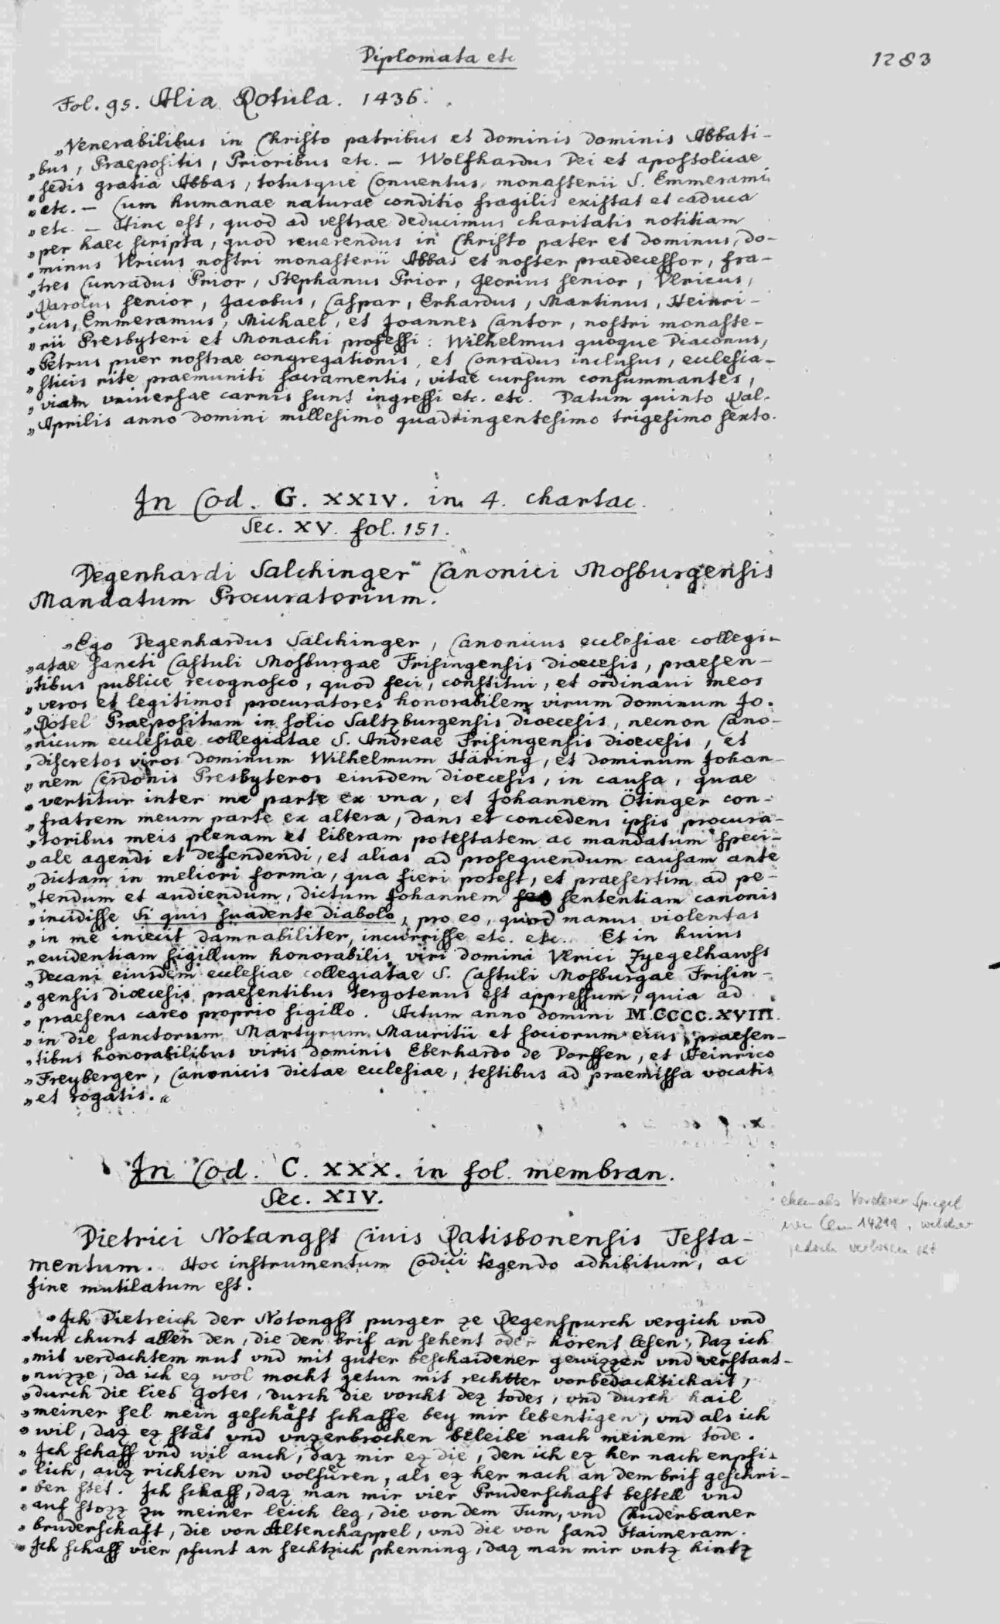 Diplomata etc
1283
Fol. 95. Alia Rotula. 1436.
„Venerabilibus in Christo patribus et dominis dominis Abbati-
„bus, Praepositis, Prioribus etc. – Wolfhardus Dei et apostolicae
„sedis gratia Abbas, totusque Conventus monasterii S. Emmerami
„etc. – Cum humanae naturae conditio fragilis existat et caduca
„etc. – Hinc est, quod ad vestrae deducimus charitatis notitiam
„per haec scripta, quod reuerendus in Christo pater et dominus, do-
„minus Ulricus nostri monasterii Abbas et noster praedecessor, fra-
„tres Cunradus Prior, Stephanus Prior, Georius senior, Vlricus,
„Carolus senior, Jacobus, Caspar, Erhardus, Martinus, Heinri-
„cus, Emmeramus, Michael, et Joannes Cantor, nostri monaste-
„rii Presbyteri et Monachi professi: Wilhelmus quoque Diaconus,
„Petrus puer nostrae congregationis, et Conradus inclusus, ecclesia-
„sticis rite praemuniti sacramentis, vitae cursum consummantes,
„viam vniuersae carnis sunt ingressi etc. etc. Datum quinto Cal.
„Aprilis anno domini millesimo quadringentesimo trigesimo sexto.
In Cod. G. XXIV. in 4. chartac.
Sec. XV. fol. 151.
Degenhardi Salchinger Canonici Mosburgensis
Mandatum Procuratorium.
„Ego Degenhardus Salchinger, Canonicus ecclesiae collegi-
„atae sancti Castuli Mosburgae Frisingensis dioecesis, praesen-
„tibus publice recognosco, quod feci, constitui, et ordinaui meos
„veros et legitimos procuratores honorabilem virum dominum Jo.
„Potel Praepositum in solio Saltzburgensis dioecesis, necnon Cano-
„nicum ecclesiae collegiatae S. Andreae Frisingensis dioecesis, et
„discretos viros dominum Wilhelmum Häring, et dominum Johan-
„nem Cerdonis Presbyteros eiusdem dioecesis, in causa, quae
„vertitur inter me parte ex vna, et Johannem Ötinger con-
„fratrem meum parte ex altera, dans et concedens ipsis procura-
„toribus meis plenam et liberam potestatem ac mandatum speci-
„ale agendi et defendendi, et alias ad prosequendum causam ante
„dictam in meliori forma, qua fieri potest, et praesertim ad pe-
„tendum et audiendum, dictum Johannem sententiam canonis
„incidisse Si quis suadente diabolo, pro eo, quod manus violentas
„in me iniecit damnabiliter, incurrisse etc. etc. Et in huius
„euidentiam sigillum honorabilis viri domini Vlrici Zyegelhawss
„Decani eiusdem ecclesiae collegiatae S. Castuli Mosburgae Frisin-
„gensis dioecesis praesentibus tergotenus est appressum, quia ad
„praesens careo proprio sigillo. Actum anno domini M.CCCC.XVIII.
„in die sanctorum Martyrum Mauritii et sociorum eius, praesen-
„tibus honorabilibus viris dominis Eberhardo de Dorffen, et Heinrico
„Freyberger, Canonicis dictae ecclesiae, testibus ad praemissa vocatis
„et rogatis.„
In Cod. C. XXX. in fol. membran.
Sec. XIV.
ehemals Vorderer Spiegel
von Clm 14299, welcher
jedoch verloren ist
Dietrici Notangst Ciuis Ratisbonensis Testa-
mentum. Hoc instrumentum Codici tegendo adhibitum, ac
fine mutilatum est.
„Ich Dietreich der Notongst purger ze Regenspurch vergich vnd
„tun chunt allen den, die den brif an sehent oder hörent lesen, Daz ich
„mit verdachtem mut vnd mit guter beschaidener gewizzen vnd verstant-
„nuzze, da ich ez wol mocht getun mit rechtter vorbedachtichait,
„durch die lieb Gotes, durch die vorcht dez todes, vnd durch hail
„meiner sel mein geschäft schaffe bey mir lebentigen, vnd als ich
„wil, daz ez stät vnd vnzerbrochen beleibe nach meinem tode.
„Ich schaff vnd wil auch, daz mir ez die, den ich ez her nach enpfi-
„lich, auz richten vnd volfüren, als ez her nach an dem brif geschri-
„ben stet. Ich schaff, daz man mir vier Pruderschaft bestell vnd
„auf stozz zu meiner leich leg, die von dem Tum, vnd Chuderbaner
„bruderschaft, die von Altenchappel, vnd die von sand Haimeram.
„Ich schaff vier pfunt an sechtzich phenning, daz man mir vntz hintz